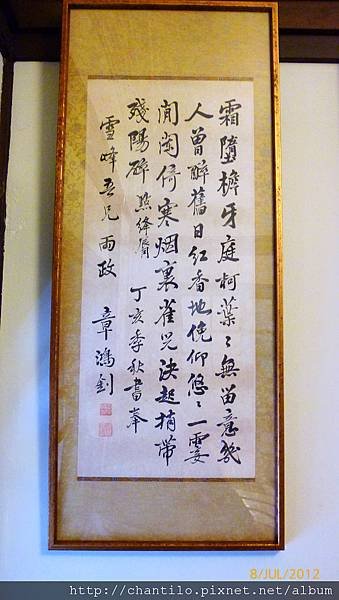 霜墮檐牙庭柯葉〻無留意幾
人曾醉舊日紅香地俛仰悠〻一霎
閒闌倚寒烟裏雀兒決起捎帶
殘陽碎 點絳脣 丁亥季秋書奉
雪峰吾兄兩政 章鴻釗
8/JUL/2012
http://chantilo.pixnet.net/album